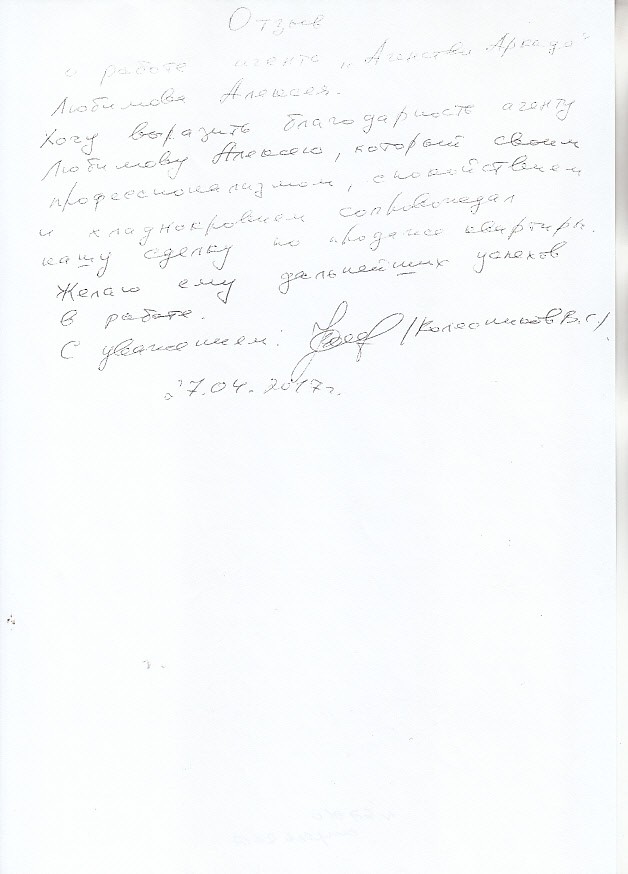 Отзыв
о работе агента "Агенства Аркада"
Любимова Алексея.
Хочу выразить благодарность агенту
Любимову Алексею, который своим
профессионализмом, спокойствием
и хладнокровием сопровождал
нашу сделку по продаже квартиры.
Желаю ему дальнейших успехов
в работе.
С уважением: /Колесников В.С/
27.04.2017г.